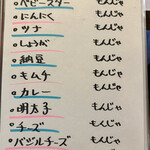 ベビースター もんじゃ
にんにく もんじゃ
ツナ もんじゃ
しょうが もんじゃ
納豆 もんじゃ
キムチ もんじゃ
カレー もんじゃ
明太子 もんじゃ
チーズ もんじゃ
バジルチーズ もんじゃ